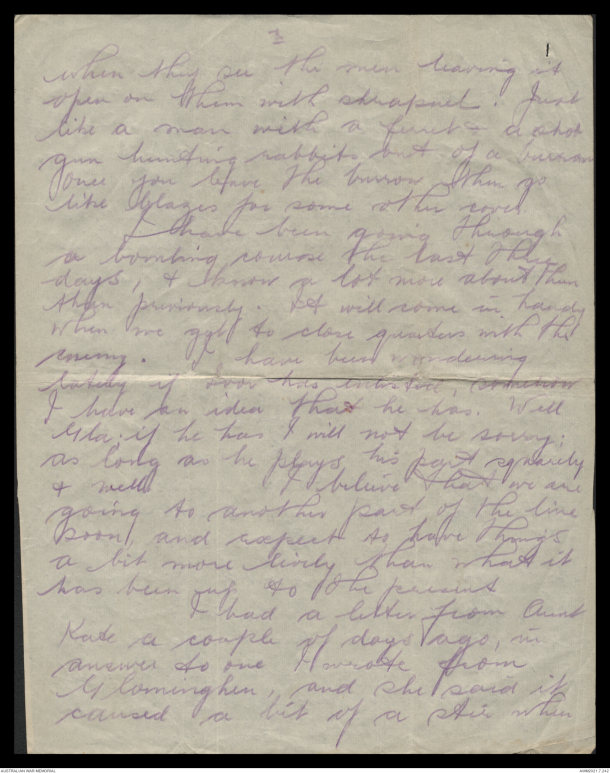 3
when they see the men leaving it
open on them with shrapnel. Just
like a man with a ferret & a shot
gun hunting rabbits out of a burrow
once you leave the burrow then go
like blazes for some other cover.
I have been going through
a bombing course the last three
days, & know a lot more about them
than previously. It will come in handy
when we get to close quarters with the
enemy. I have been wondering
lately if has enlisted, somehow
I have an idea that he has. Well
Gla; if he has I will not be sorry;
as long as he plays his part squarely
& well. I believe that we are
going to another part of the line
soon, and expect to have things
a bit more lively than what it
has been up to the present
I had a letter from Aunt
Kate a couple of days ago, in
answer to one I wrote from
, and she said it
caused a bit of a stir when
AUSTRALIAN WAR MEMORIAL